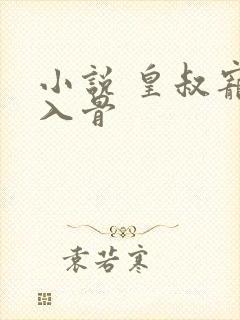 小説 皇叔寵
入骨
袁若寒